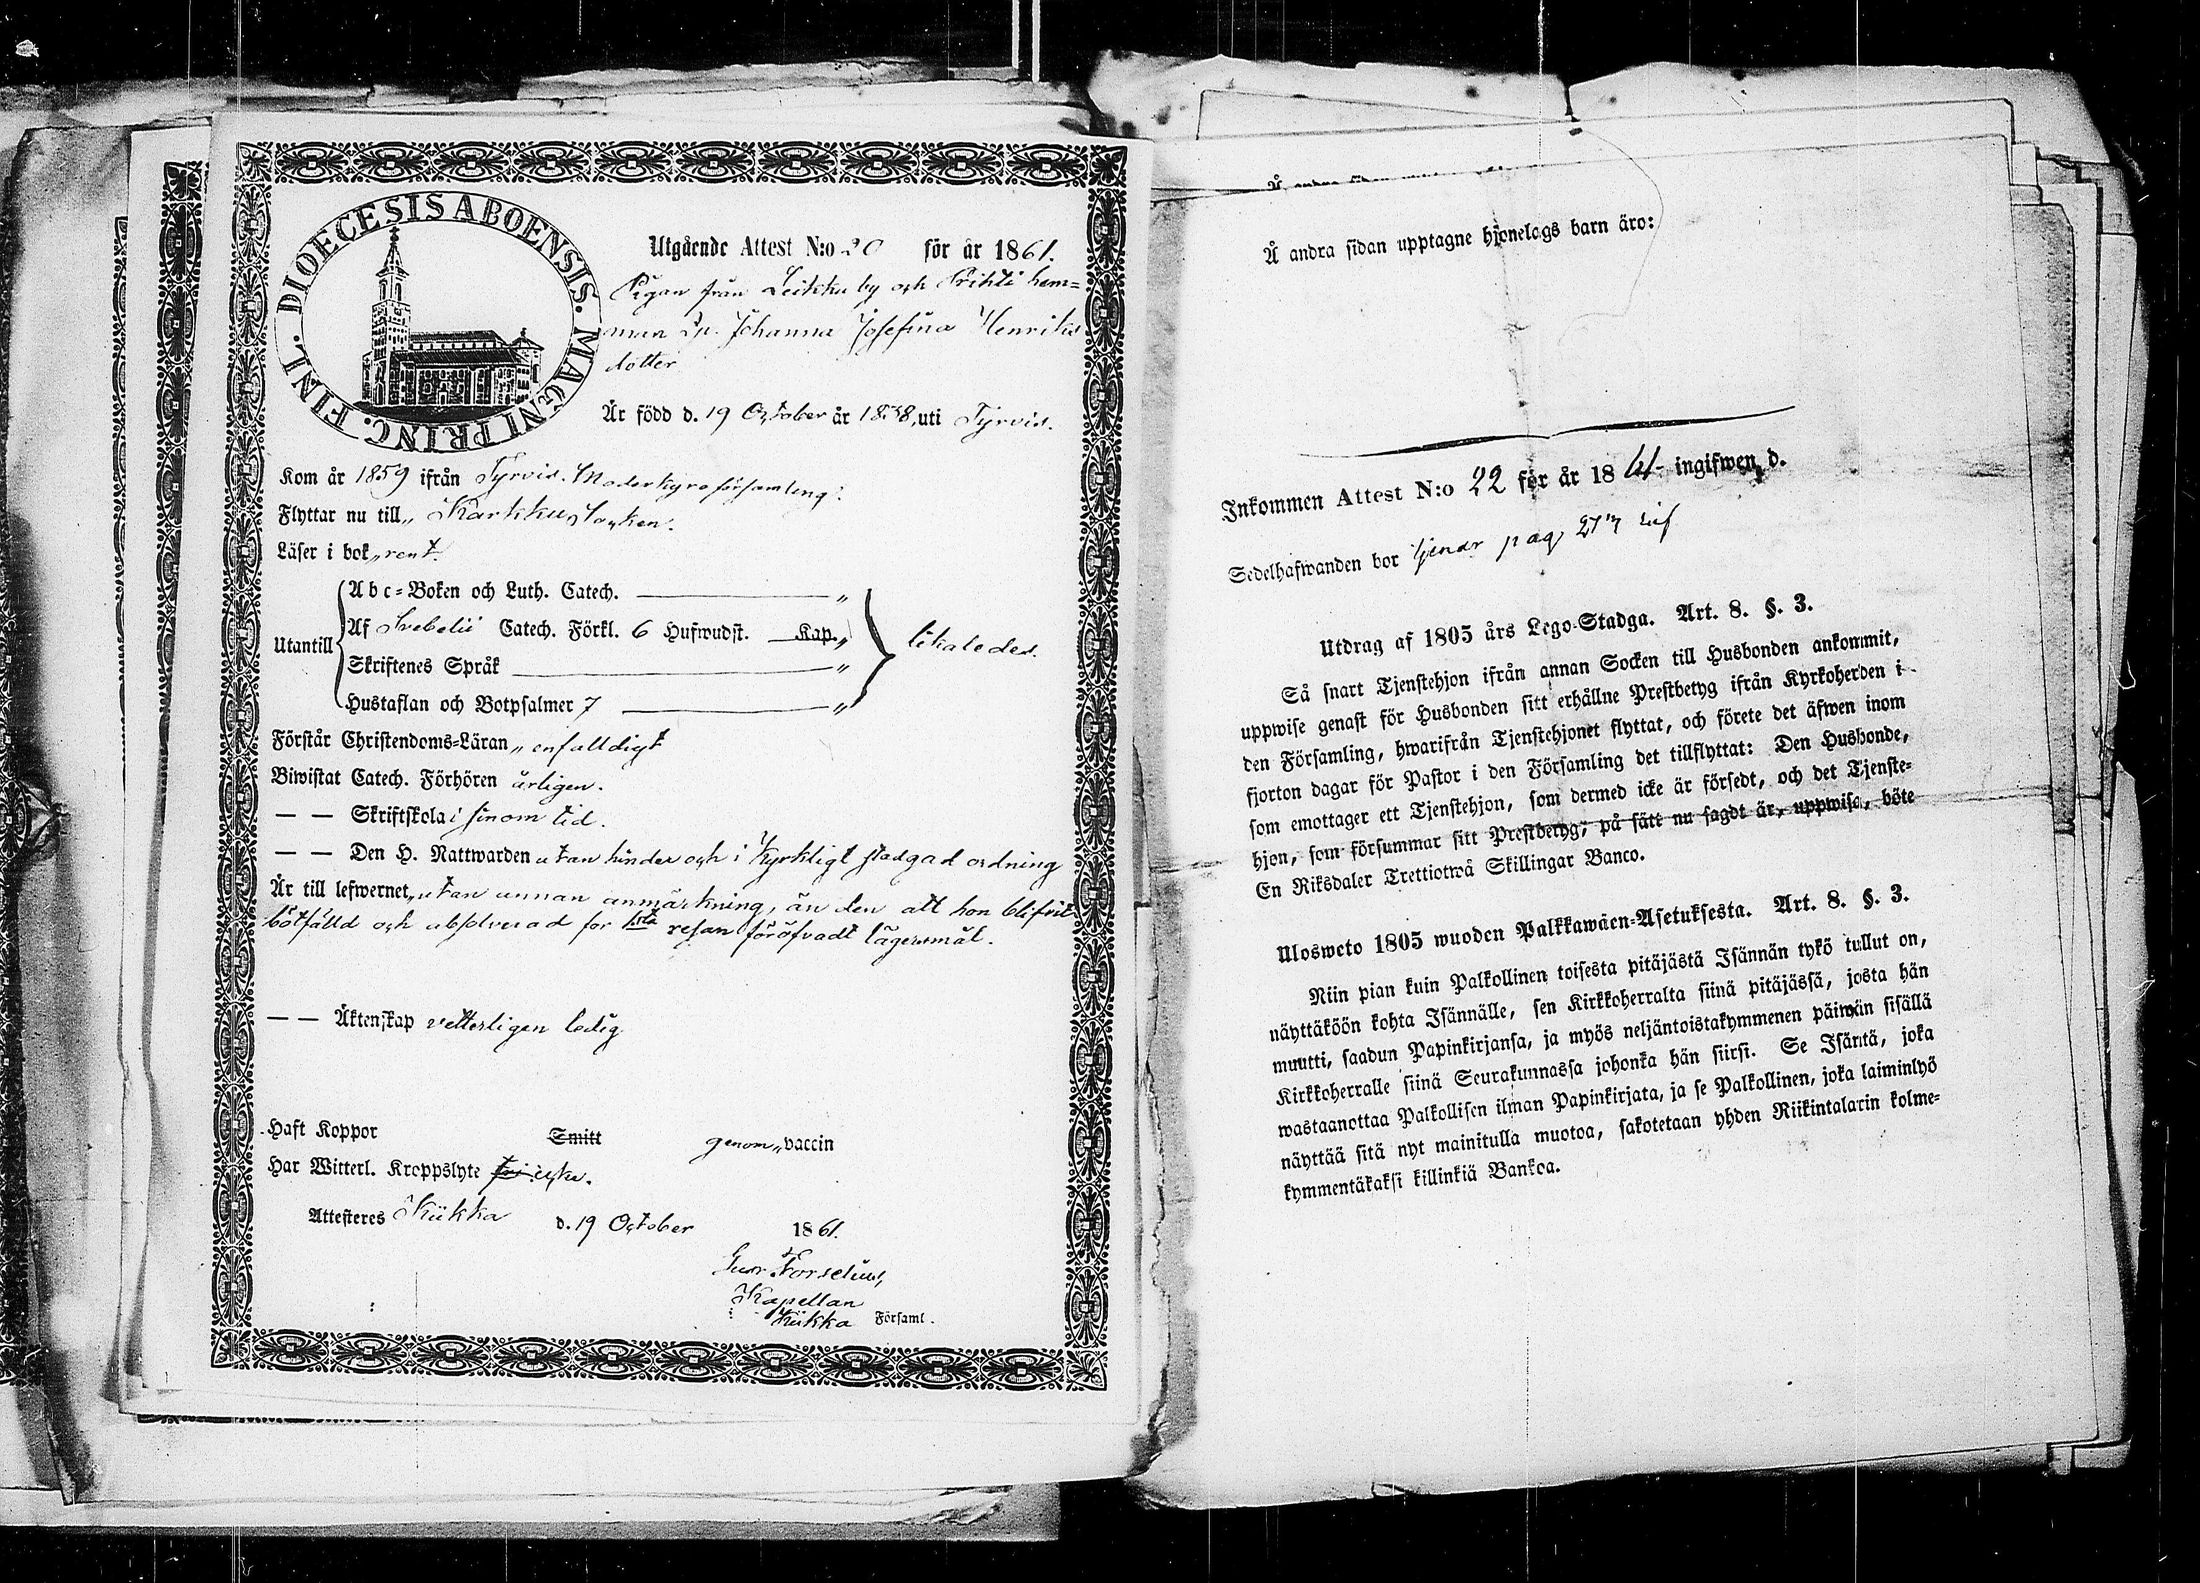 DIOECESIS ABOENSIS. MAGNI PRINC. FINL.
Utgående Attest N:o 20 för år 1861.
Pigan från Leikku by och Prihti hem=
man Johanna Josefina Henriks
dotter
Är född d. 19 October år 1838, uti Tyrvis.
Kom år 1859 ifrån Tyrvis Moderkyroförsamling.
Flyttar nu till„ Karkku Socken.
Läser i bok„ rent.
Utantill
Abc=Boken och Luth. Catech. „
Af Svebelii Catech. Förkl. 6 Hufwudst. Kap. „
Skriftenes Språk „
Hustaflan och Botpsalmer 7 „
likaledes.
Förstår Christendoms=Läran„ enfalldigt
Biwistat Catech. Förhören årligen.
— — Skriftskola i sinom tid.
— — Den H. Nattwarden utan hinder och i Kyrkligt stadgad ordning
Är till lefwernet„ utan annan anmärkning, än den att hon blifvit
bötfälld och absolverad för 1sta resan föröfvadt lägersmål.
— — Äktenskap vetterligen ledig
Haft Koppor Smitt genom„ vaccin
Har Witterl. Kroppslyte fri icke.
Attesteres Kiikka d. 19 October 1861.
Gust. Forselius,
Kapellan
Kiikka Församl.
Å andra sidan upptagne hjonelags barn äro:
Inkommen Attest N:o 22 för år 1861 ingifwen d.
Sedelhafwanden bor tjenar pag 217
Utdrag af 1805 års Lego-Stadga. Art. 8. §. 3.
Så snart Tjenstehjon ifrån annan Socken till Husbonden ankommit,
uppwise genast för Husbonden sitt erhållne Prestbetyg ifrån Kyrkoherden i
den Församling, hwarifrån Tjenstehjonet flyttat, och förete det äfwen inom
fjorton dagar för Pastor i den Församling det tillflyttat: Den Husbonde,
som emottager ett Tjenstehjon, som dermed icke är försedt, och det Tjenste=
hjon, som försummar sitt Prestbetyg, på sätt nu sagdt är, uppwisa, böte
En Riksdaler Trettiotwå Skillingar Banco.
Ulosweto 1805 wuoden Palkkawäen=Asetuksesta. Art. 8. §. 3.
Niin pian kuin Palkollinen toisesta pitäjästä Isännän tykö tullut on,
näyttäköön kohta Isännälle, sen Kirkkoherralta siinä pitäjässä, josta hän
muutti, saadun Papinkirjansa, ja myös neljäntoistakymmenen päiwän sisällä
Kirkkoherralle siinä Seurakunnassa johonka hän siirsi. Se Isäntä, joka
wastaanottaa Palkollisen ilman Papinkirjata, ja se Palkollinen, joka laiminlyö
näyttää sitä nyt mainitulla muotoa, sakotetaan yhden Riikintalarin kolme=
kymmentäkaksi killinkiä Bankoa.